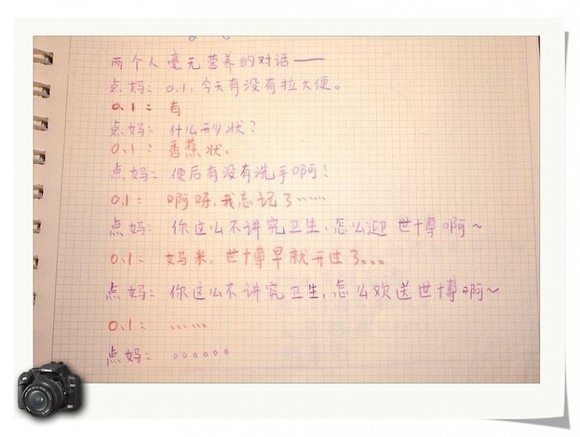 两个人毫无营养的对话——
点妈：0.1，今天有没有拉大便。
0.1：有
点妈：什么形状？
0.1：香蕉状。
点妈：便后有没有洗手啊？
0.1：啊呀，我忘记了……
点妈：你这么不讲究卫生，怎么迎世博啊～
0.1：妈米，世博早就开过了。。。
点妈：你这么不讲究卫生，怎么欢送世博啊～
0.1：……
点妈：。。。。。。